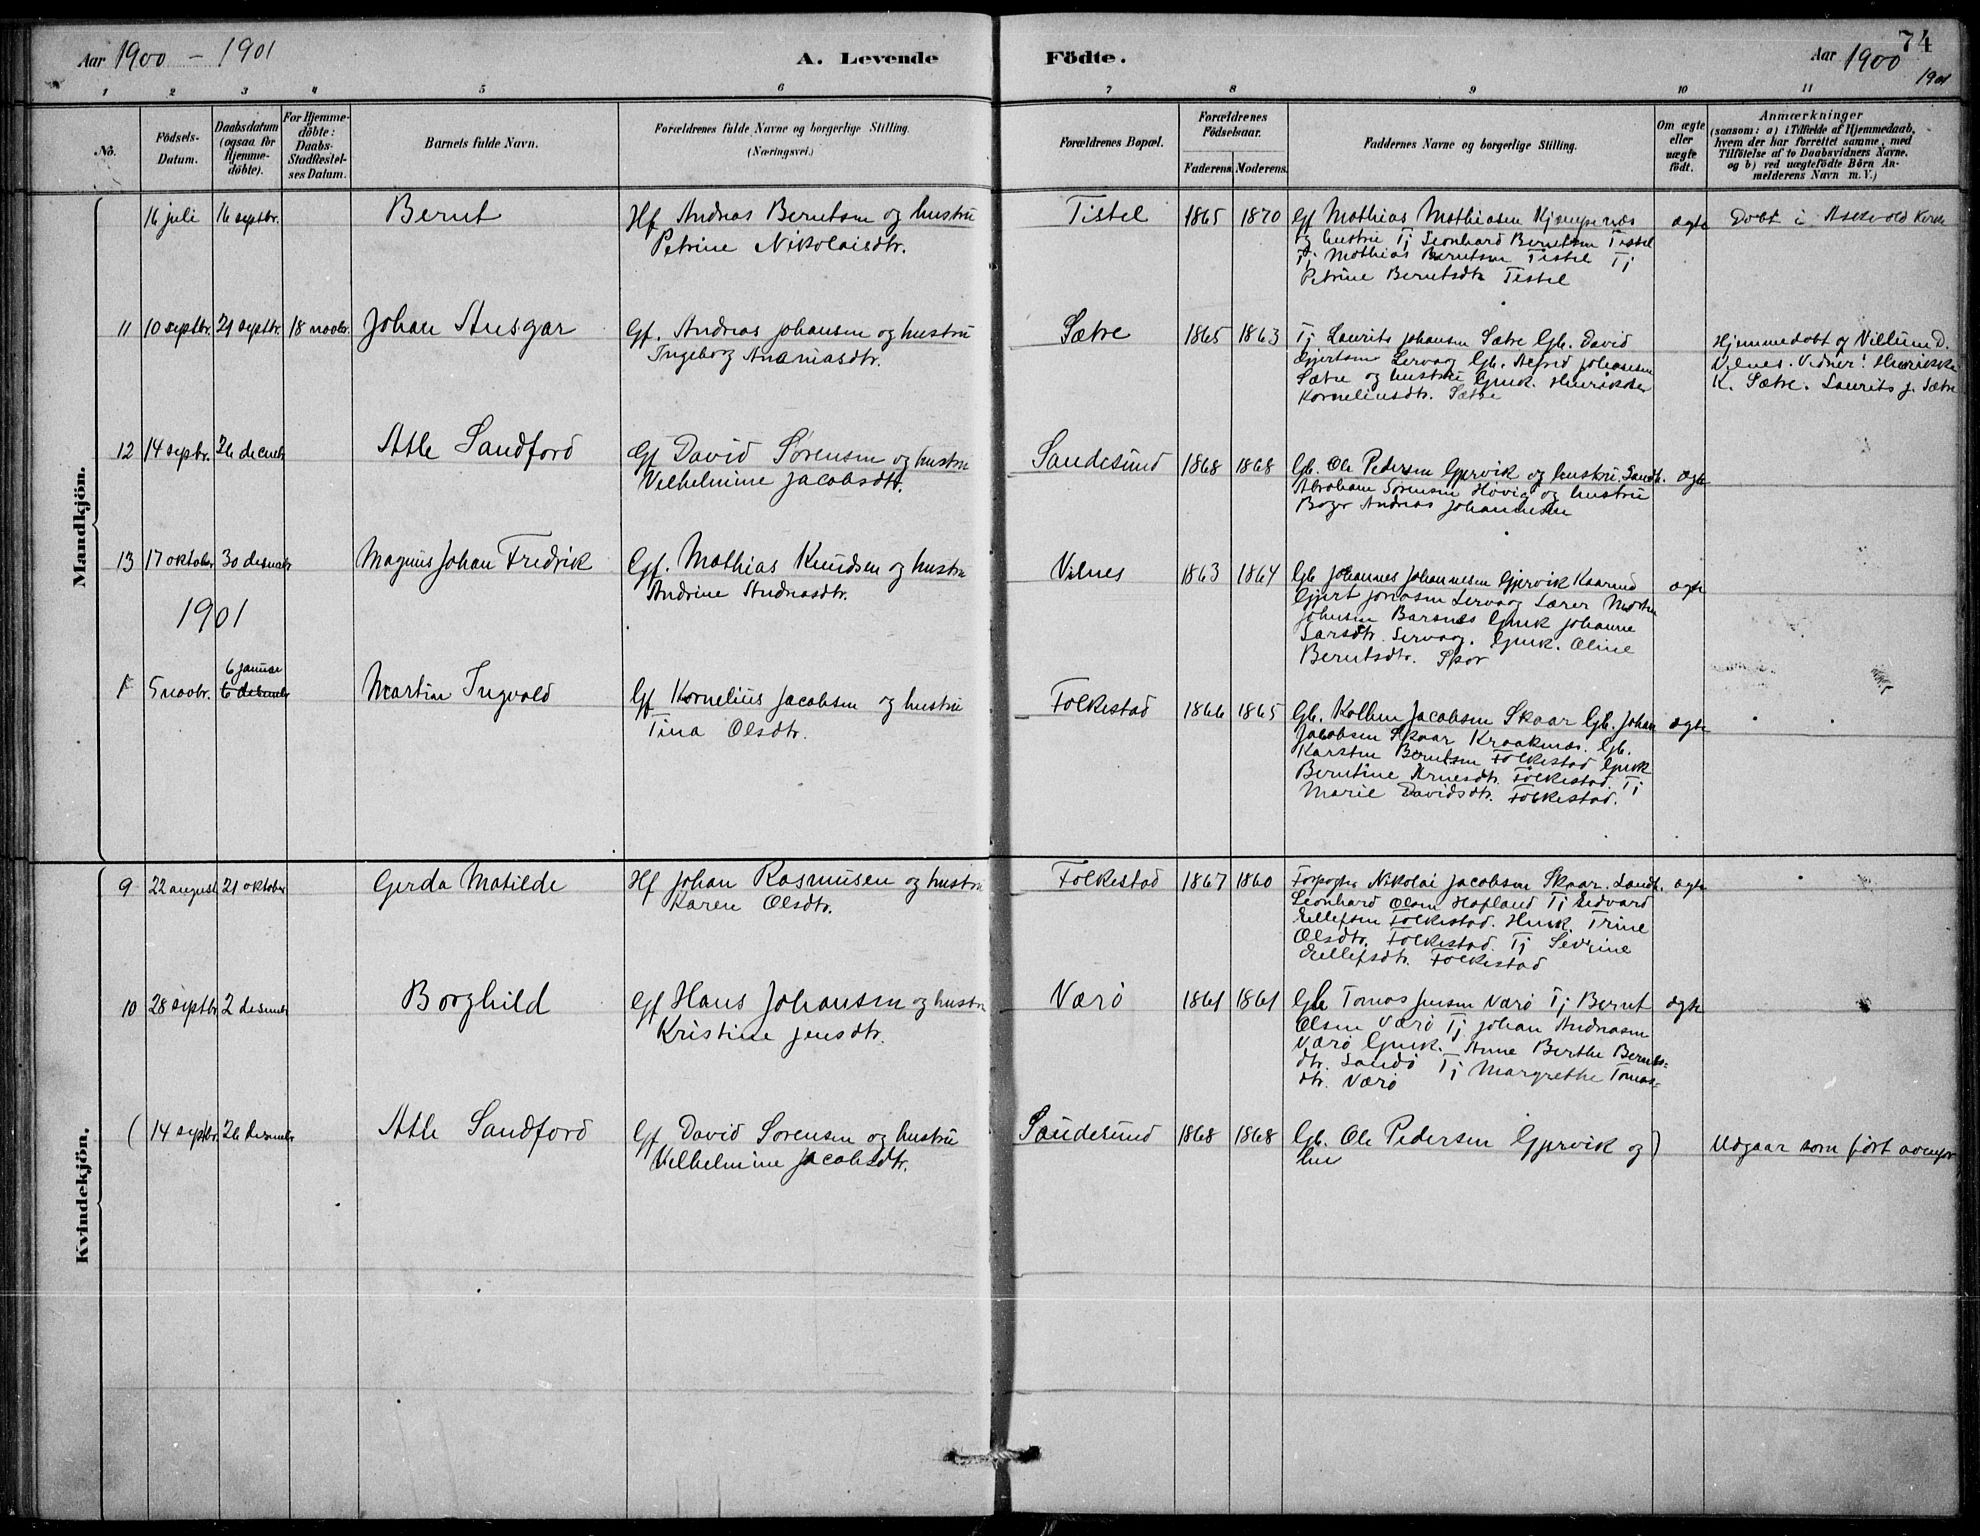 74
Aar 1900 - 1901
A. Levende Födte.
Aar 1900
1901
1 2 3 4 5 6 7 8 9 10 11
No.
Födsels-Datum.
Daabsdatum (ogsaa for Hjemmedöbte).
For Hjemmedöbte: Daabs-Stadfæstelses Datum.
Barnets fulde Navn.
Forældrenes fulde Navne og borgerlige Stilling.
(Næringsvei.)
Forældrenes Bopæl.
Forældrenes Födselsaar.
Faderens. Moderens.
Faddernes Navne og borgerlige Stilling.
Om ægte eller uægte födt.
Anmærkninger
(saasom: a) i Tilfælde af Hjemmedaab, hvem der har forrettet samme, med Tilföielse af to Daabsvidners Navne. og b) ved uægtefödte Börn Anmelderens Navn m. V.)
Mandkjön.
16 juli 16 septbr. Bernt Hf Andreas Berntsen og hustru Tistel 1865 1870 Gf Mathias Mathiasen Kjempenæs ægte Döbt i Askvold Kirke
Petrine Nikolaisdtr. og hustru Tj Leonhard Berntsen Tistel
Tj Mathias Berntsen Tistel Tj
Petrine Berntsdtr Tistel
11 10 septbr. 21 septbr. 18 novbr. Johan Ansgar Gf. Andreas Johansen og hustru Sætre 1865 1863 Tj Laurits Johansen Sætre Gb. David Hjemmedobt og Villum D.
Ingeborg Ananiasdtr. Gjertsen Lervaag Gb. Alfred Johansen Vilnes. Vidner: Henrikke
Sætre og hustru Gmk. Henrikke K. Sætre. Laurits J. Sætre
Korneliusdtr. Sætre
12 14 septbr. 26 decmbr Atle Sandford Gf David Sørensen og hustru Sandesund 1868 1868 Gb. Ole Pedersen Gjervik og hustru. Sandh. ægte
Wilhelmine Jacobsdtr. Abraham Sørensen Høvig og hustru
Bager Andreas Johannesen
13 17 oktober 30 desmbr Magnus Johan Fredrik Gf. Mathias Knudsen og hustru Vilnes 1863 1864 Gb Johannes Johannesen Gjervik Kaarund ægte
Andrine Andreasdtr. Gjert Jonasen Lervaag Lærer Morten
1901 Johnsen Barsnes Gmk Johanne
Larsdtr. Lervaag. Gmk. Oline
Berntsdtr. Skor
6 januar
1 5 novbr. 6 desmbr Martin Ingvald Gf Kornelius Jacobsen og hustru Folkestad 1866 1865 Gb. Kolben Jacobsen Skaar Gb. Johan ægte
Tina Olsdtr. Jacobsen Skaar Kraaknæs. Gb.
Karsten Berntsen Folkestad Gmk
Berntine Arnesdtr. Folkestad. Tj
Marie Davidsdtr. Folkestad.
Kvindekjön.
9 22 august 21 oktober Gerda Matilde Hf Johan Rasmusen og hustru Folkestad 1867 1860 Nikolai Jacobsen Skaar. Landh. ægte
Karen Olsdtr. Leonhard Olsen Hofland Tj Edvard
Eellefsen Folkestad. Hmk. Trine
Olsdtr. Folkestad. Tj Sevrine
Eellefsdtr. Folkestad
10 28 septbr 2 desmbr Borghild Gf Hans Johansen og hustru Værö 1861 1861 Gb Tomas Jensen Værö Tj Bernt ægte
Kristine Jensdtr. Olsen Værö Tj Johan Andreasen
Værö Gmk. Anne Berthe Bernts-
dtr. Sandö Tj Margrethe Tomas-
dtr. Værö
( 14 septbr. 26 desmbr Atle Sandford Gf David Sorensen og hustru Sandesund 1868 1868 Gb. Ole Pedersen Gjervik og ) Udgaar som fört ovenfor
Vilhelmine Jacobsdtr. hu